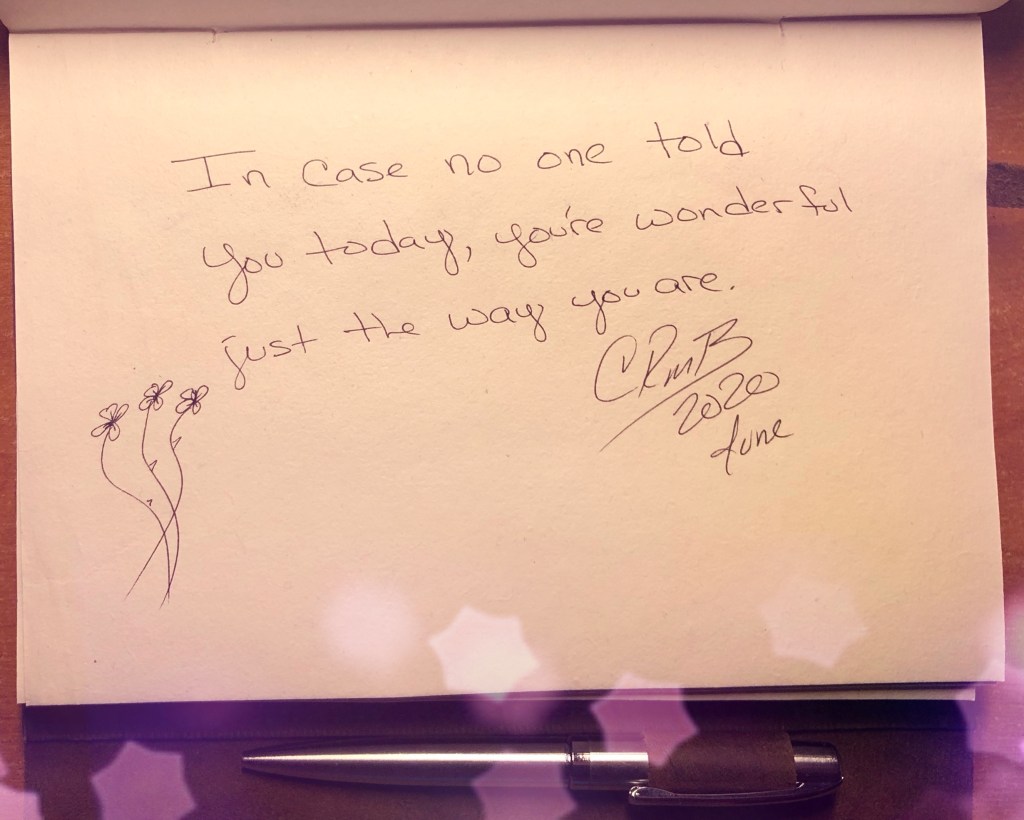 In case no one told
you today, you're wonderful
just the way you are.
CRMB
2020
June